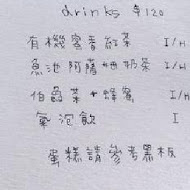 drinks $120
有機蜜香紅茶 I/H
魚池阿薩姆奶茶 I/H
伯爵茶+蜂蜜 I/H
氣泡飲 I
蛋糕請參考黑板